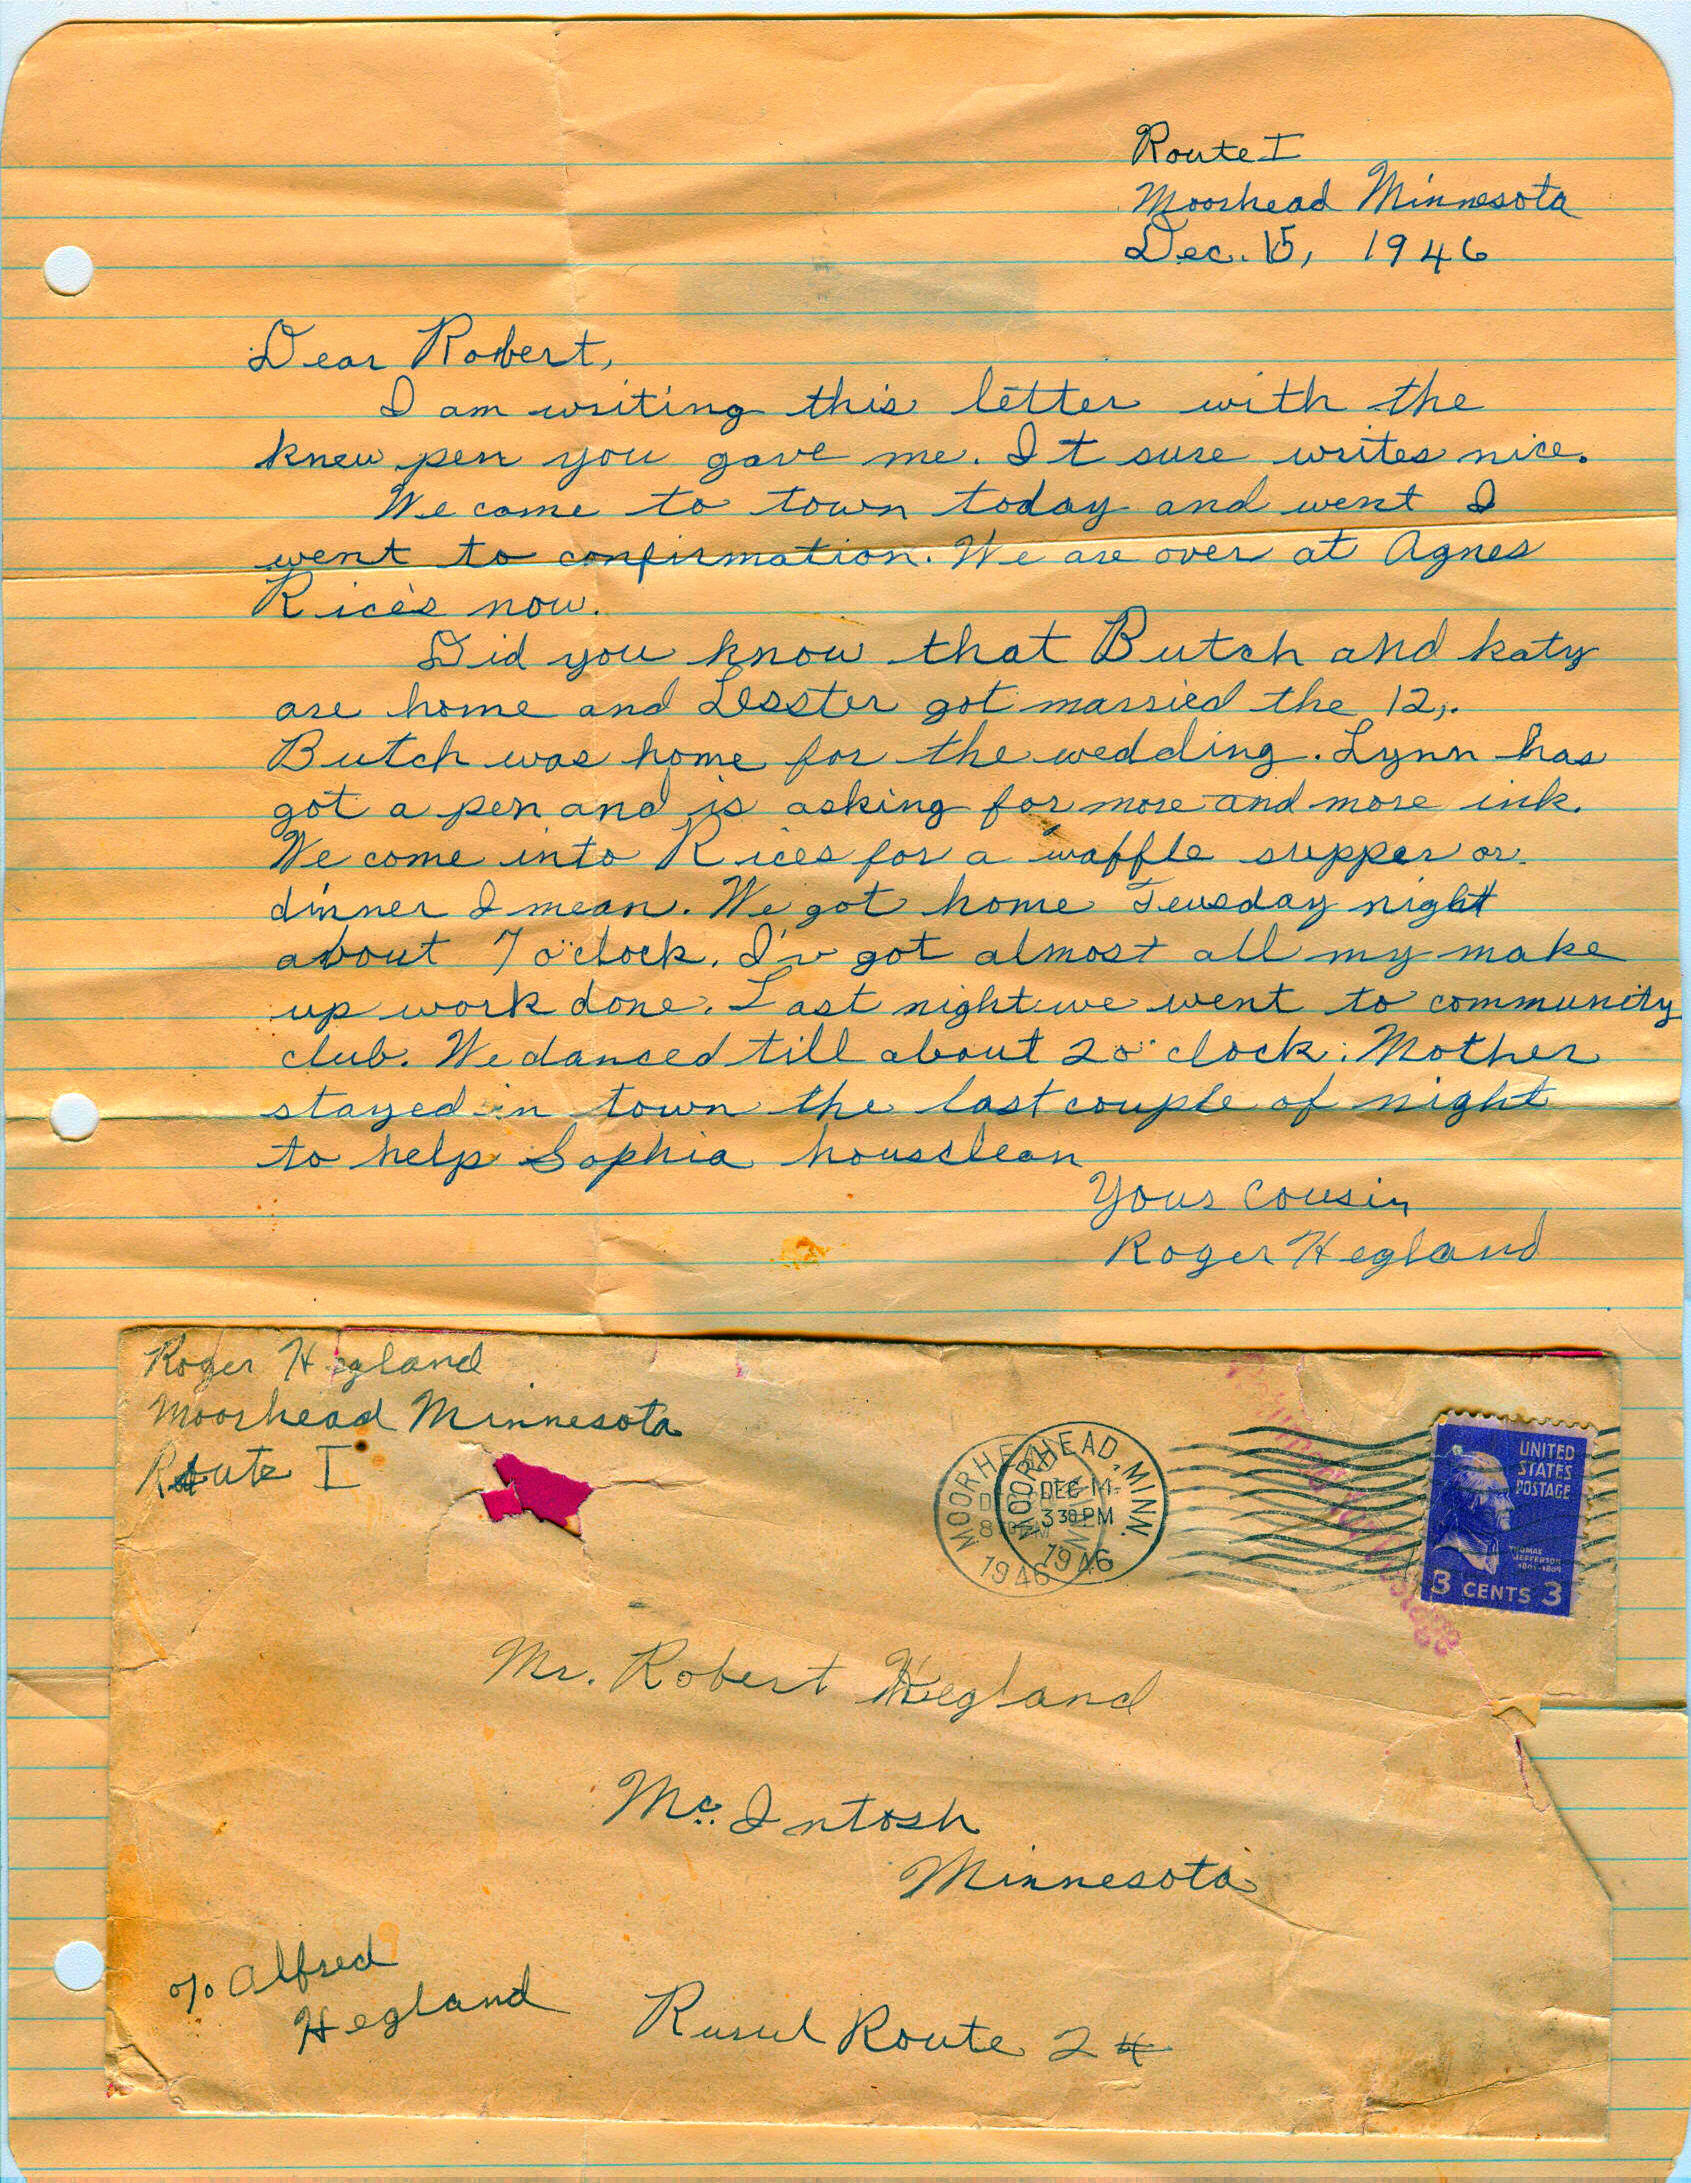 Route I
Moorhead Minnesota
Dec. 15, 1946
Dear Robert,
I am writing this letter with the
knew pen you gave me. It sure writes nice.
We came to town today and went I
went to confirmation. We are over at Agnes
Rice's now.
Did you know that Butch and Katy
are home and Lesster got married the 12,.
Butch was home for the wedding. Lynn has
got a pen and is asking for more and more ink.
We come into Rices for a waffle supper or
dinner I mean. We got home Teusday night
about 7 o'clock. I'v got almost all my make
up work done. Last night we went to community
club. We danced till about 2 o'clock. Mother
stayed in town the last couple of night
to help Sophia housclean
Your Cousin
Roger Hegland
Roger Hegland
Moorhead Minnesota
Route I
MOORHEAD, MINN.
DEC 14
3 30 PM
1946
MOORHEAD
1946
UNITED
STATES
POSTAGE
THOMAS
JEFFERSON
1801-1809
3 CENTS 3
Mr. Robert Hegland
Mc. Intosh
Minnesota
c/o Alfred
Hegland
Rurul Route 2